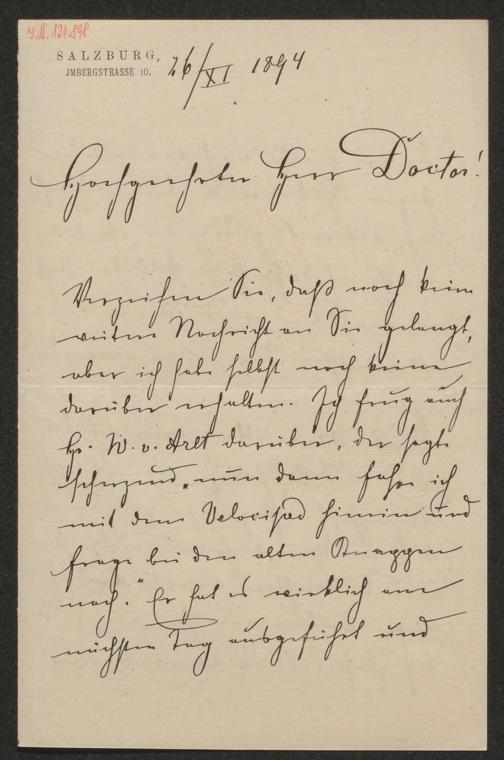 J.N. 121.898
SALZBURG,
JMBERGSTRASSE 10.
26/XI 1894
Hochgeehrter Herr Doctor!
Verzeihen Sie, daß noch keine
weitere Nachricht an Sie gelangt,
aber ich habe selbst noch keine
darüber erhalten. Ich frug auch
H. W. v. Arlt darüber, der sagte
scherzend „nun dann fahre ich
mit dem Velociped hinein und
frage bei den alten Knappen
nach.“ Er hat es wirklich am
nächsten Tag ausgeführt und